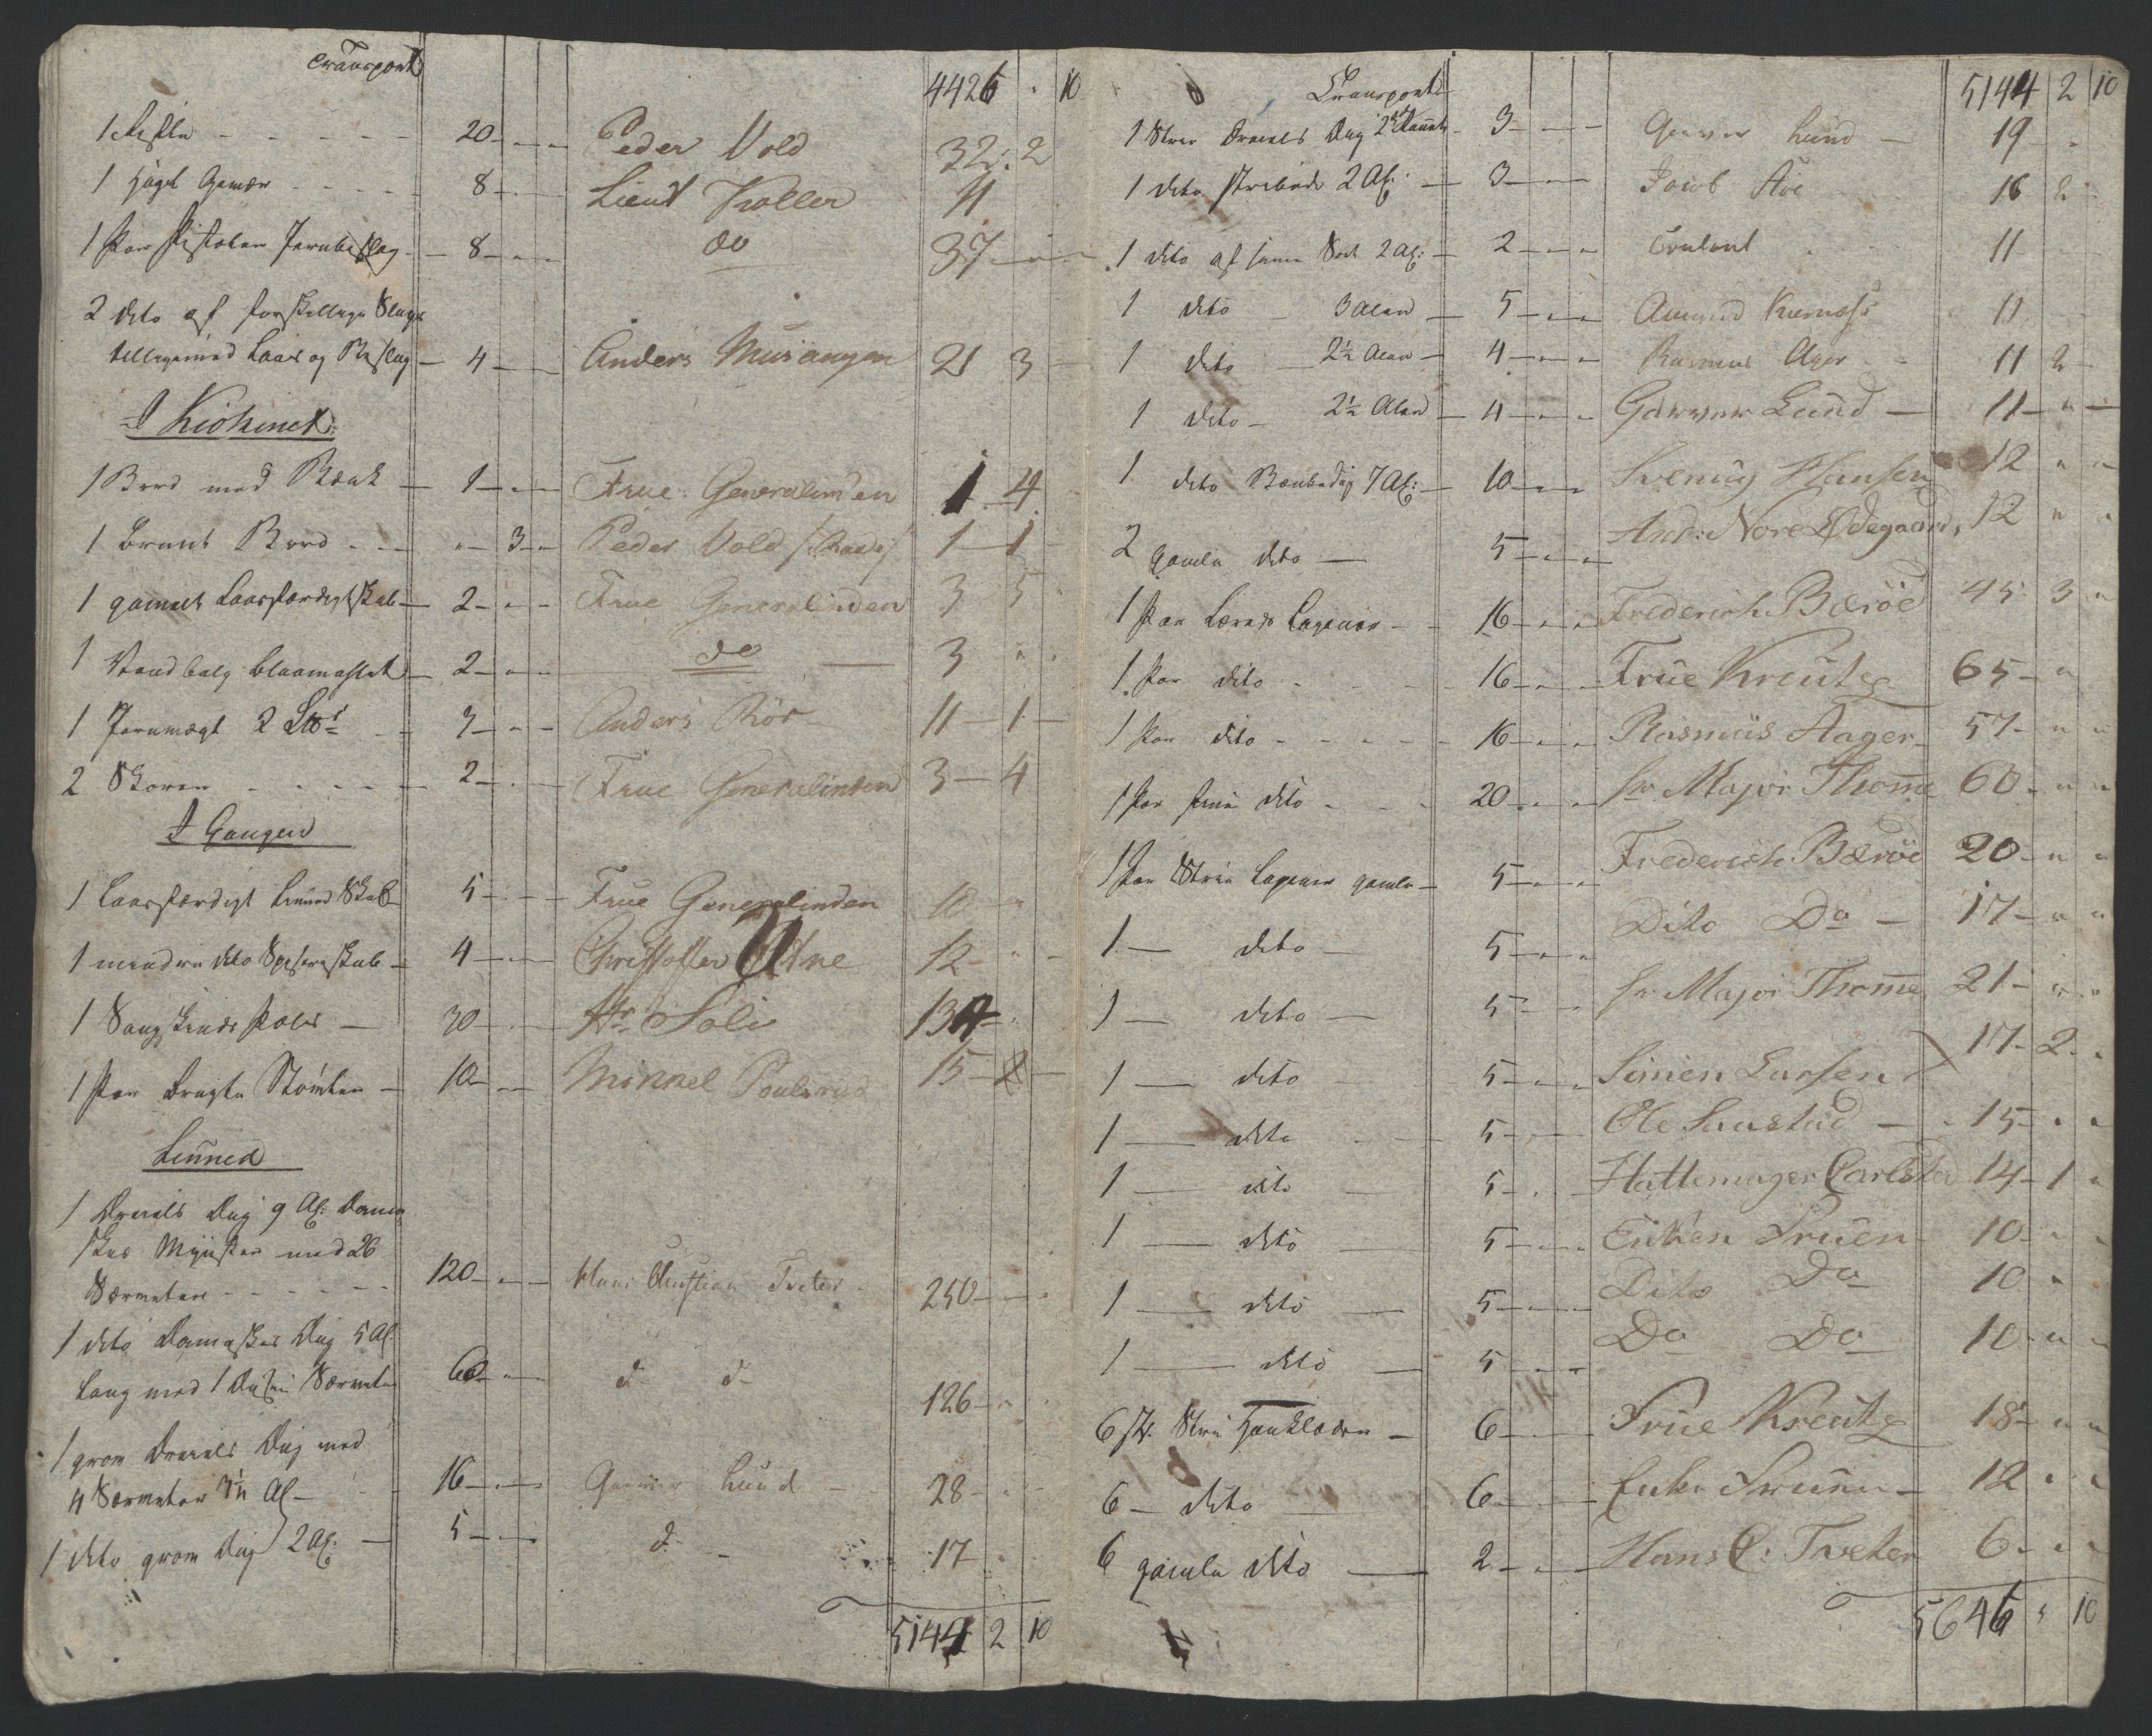 Transport 4426 " 10
1 20 " " Peder Vold 32 . 2
1 Jagt Gevær 8 " " Lieut Koller 11
1 Par Pistoler Jernbeslag 8 " " do 37 " "
2 dito af forskellige Slags
tilligemed Laas og Beslag 4 Anders Musangen 21 3
I Kiökinet
1 Bord med Bænk 1 " Frue Generalinden 1 4
1 Brunt Bord " 3 " Peder Vold 1 1
1 gammelt Laasfærdigt skab 2 " " Frue Generalinden 3 5
1 Vandbalg blaamalet 2 " " do 3 " "
1 Jernvægt 3 " " Anders Röe 11 1
2 2 " Frue Generalinden 3 4
I Gangen
1 Laasfærdigt Linned Skab 5 Frue Generalinden 10 "
1 mindre dito Spiseskab 4 Christoffer 12 " "
1 30 Hr Solie 134 "
1 Par brugte Stövler 10 Mikkel Poulsrud 15 2
Linned
1 Dreiels Dug 9 Al: Dama
skes Mynster med 26
Servieter 120 " Hans Christian Tveter 250
1 dito Damaskes Dug 5 Al
Lang med 1 Dusin Servieter 60 " d d 126 "
1 grov Dreiels Dug med
4 Servieter 3½ Al 16 Gunner Lund 28
1 dito grov Dug 2 Al: 5 d 17
5144 2 10
Transport 5144 2 10
1 Dreiels Dug 3 Gunner Lund 19
1 dito 2 Al: 3 Jacob 16 2
1 dito af samme Sort 2 Al: 2 11
1 dito 3 Alen 5 Amund 11
1 dito 2½ Alen 4 Rasmus Ager 11 2
1 dito 2½ Alen 4 Gunner Lund 11 "
1 dito 7 Al: 10 Svenung Hansen 12 " "
2 gamle dito 5 And: Nore Ødegaard, 12 " "
1 Par Lærreds Lagener 16 Frederich Bæröe 45 3 "
1 Par dito 16 Frue Kreutz 65 "
1 Par dito 16 Rasmüs Aager 57 " "
1 Par fine dito 20 Hr Major Thome 60 " "
1 Par Strie Lagener gamle 5 Frederich Bæröe 20 " "
1 dito 5 Dito Do 17 " "
1 dito 5 Hr Major Thome 21 " "
1 dito 5 Simen Larsen 17 2 "
1 dito 5 Ole 15 " "
1 dito 5 Hattemager 14 1 "
1 dito 5 Enken Truen 10 " "
1 dito 5 Dito Do 10 "
1 dito 5 Do Do 10 " "
6 st. Strie Haandklæder 6 Frue Kreutz 18 " "
6 dito 6 12 " "
6 gamle dito 2 Hans C: Tveter 6 " "
5646 5 10